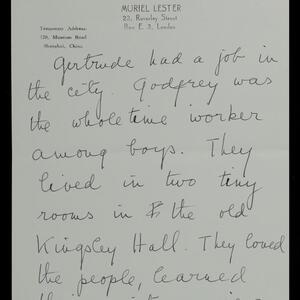 MURIEL LESTER
Temporary Address:
128, Museum Road
Shanghai, China.
Bow E. 3, London
Gertrude had a job in
the city. Godfrey was
the whole time worker
among boys. They
lived in two tiny
rooms in the old
Kingsley Hall. They loved
the people, learned